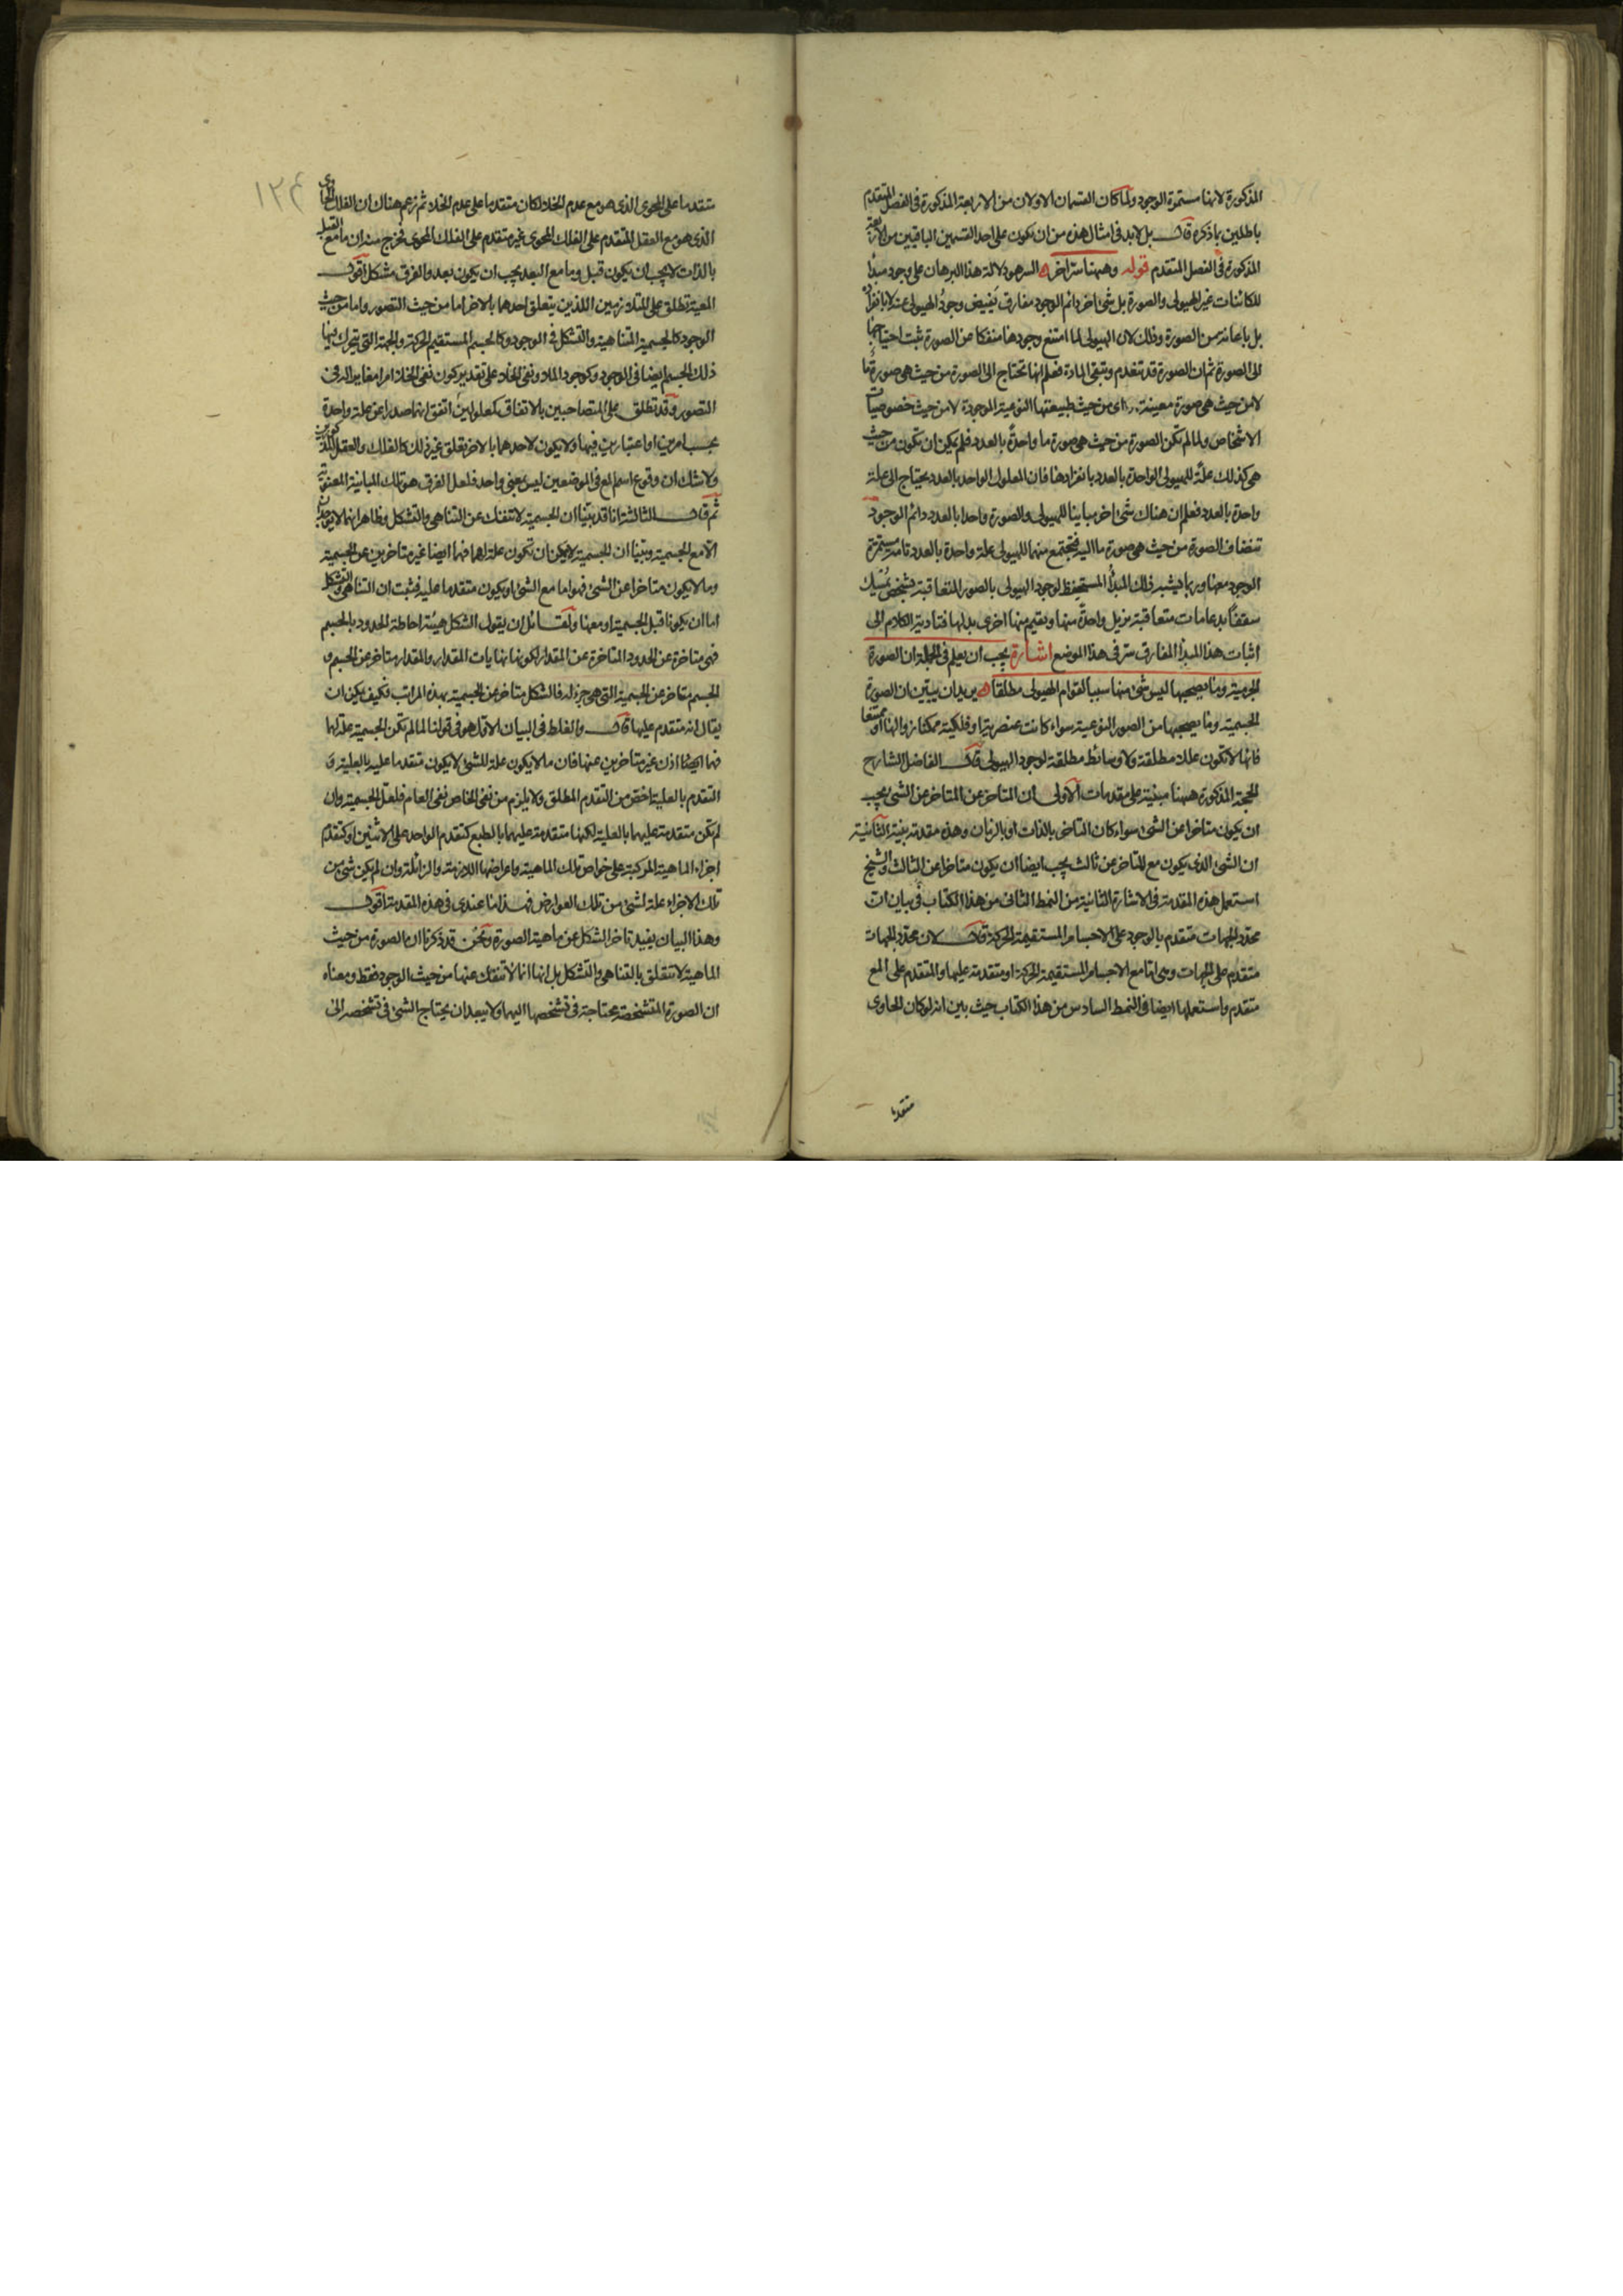 المذكورة لانها مستمرة الوجود ولما كان القسمان الاولان من الاربعة المذكورة فى الفصل المتقدم
باطلين بما ذكره قال بل لابد فى امثال هذه من ان يكون على احد القسمين الباقيين من الاربعة
المذكورة فى الفصل المتقدم قوله وههنا سر اخر السر هو دلالة هذا البرهان على وجود مبدأ
للكائنات غير الهيولى والصورة بل شئ اخر دائم الوجود مفارق يفيض وجود الهيولى عنه لا بانفراده
بل باعانة من الصورة وذلك لان الهيولى لما امتنع وجودها منفكا عن الصورة ثبت احتياجها
الى الصورة ثم ان الصورة قد تنعدم وتبقى المادة فعلم انها تحتاج الى الصورة من حيث هى صورة ما
لا من حيث هى صورة معينة اى من حيث طبيعتها النوعية الموجودة لا من حيث خصوصيات
الاشخاص ولما لم تكن الصورة من حيث هى صورة ما واحدة بالعدد فلم يمكن ان تكون من حيث
هى كذلك علة للهيولى الواحدة بالعدد بانفرادها فان المعلول الواحد بالعدد يحتاج الى علة
واحدة بالعدد فعلم ان هناك شئ اخر مباينا للهيولى والصورة واحدا بالعدد دائم الوجود
تنضاف الصورة من حيث هى صورة ما اليه فتجتمع منهما للهيولى علة واحدة بالعدد تامة مستمرة
الوجود معها وربما يشبه ذلك المبدأ المستحفظ لوجود الهيولى بالصور المتعاقبة بشخص يمسك
سقفا بدعامات متعاقبة يزيل واحدة منها ويقيم منها اخرى بدلها فتادية الكلام الى
اثبات هذا المبدأ المفارق سر فى هذا الموضع اشارة يجب ان يعلم فى الجملة ان الصورة
الجرمية وما يصحبها ليس شئ منها سببا لقوام الهيولى مطلقا يريد ان يبين ان الصورة
الجسمية وما يصحبها من الصور النوعية سواء كانت عنصرية او فلكية ممكنا زوالها او ممتنعا
فانها لا تكون عللا مطلقة ولا وسائط مطلقة لوجود الهيولى قال الفاضل الشارح
الحجة المذكورة ههنا مبنية على مقدمات الاولى ان المتاخر عن المتاخر عن الشئ يجب
ان يكون متاخرا عن الشئ سواء كان التاخر بالذات او بالزمان وهذه مقدمة بينة الثانية
ان الشئ الذى يكون مع المتاخر عن ثالث يجب ايضا ان يكون متاخرا عن الثالث والشيخ
استعمل هذه المقدمة فى الاشارة الثانية من النمط الثانى من هذا الكتاب فى بيان ان
محدد الجهات متقدم بالوجود على الاجسام المستقيمة الحركة قال لان محدد الجهات
متقدم على الجهات وهى اما مع الاجسام المستقيمة الحركة او متقدمة عليها والمتقدم على المع
متقدم واستعملها ايضا فى النمط السادس من هذا الكتاب حيث بين انه لو كان الحاوى
متقدما
١٢٤
متقدما على المحوى الذى هو مع عدم الخلاء لكان متقدما على عدم الخلاء ثم زعم هناك ان الفلك الحاوى
الذى هو مع العقل المتقدم على الفلك المحوى غير متقدم على الفلك المحوى فخرج منه ان ما مع القبل
بالذات لا يجب ان يكون قبل وما مع البعد يجب ان يكون بعد والفرق مشكل اقول
المعية تطلق على المتلازمين اللذين يتعلق احدهما بالاخر اما من حيث التصور واما من حيث
الوجود كالجسمية المتناهية والتشكل فى الوجود وكالجسم المستقيم الحركة والجهة التى يتحرك فيها
ذلك الجسم ايضا فى الوجود وكوجود الملاء ونفى الخلاء على تقدير كون نفى الخلاء امرا مغايرا له فى
التصور وقد تطلق على المتصاحبين بالاتفاق كمعلولين اتفق انهما صدرا عن علة واحدة
بحسب امرين او اعتبارين فيها ولا يكون لاحدهما بالاخر تعلق غير ذلك كالفلك والعقل المذكورين
ولا شك ان وقوع اسم المع فى الموضعين ليس بمعنى واحد فلعل الفرق هو تلك المباينة المعنوية
ثم قال الثالثة انا قد بينا ان الجسمية لا تنفك عن التناهى والتشكل وظاهر انهما لا يوجدان
الا مع الجسمية وبينا ان الجسمية لا يمكن ان تكون علة لهما فهما ايضا غير متاخرين عن الجسمية
وما لا يكون متاخرا عن الشئ فهو اما مع الشئ او يكون متقدما عليه فثبت ان التناهى والتشكل
اما ان يكونا قبل الجسمية او معها ولقائل ان يقول الشكل هيئة احاطة الحدود بالجسم
فهى متاخرة عن الحدود المتاخرة عن المقدار لكونها نهايات المقدار والمقدار متاخر عن الجسم و
الجسم متاخر عن الجسمية التى هى جزء له فالشكل متاخر عن الجسمية بهذه المراتب فكيف يمكن ان
يقال انه متقدم عليها قال والغلط فى البيان الاول هو فى قولنا لما لم تكن الجسمية علة لهما
فهما ايضا اذن غير متاخرين عنها فان ما لا يكون علة للشئ لا يكون متقدما عليه بالعلية و
التقدم بالعلية اخص من التقدم المطلق ولا يلزم من نفى الخاص نفى العام فلعل الجسمية وان
لم تكن متقدمة عليهما بالعلية لكنها متقدمة عليهما بالطبع كتقدم الواحد على الاثنين او كتقدم
اجزاء الماهية المركبة على خواص تلك الماهية واعراضها اللازمة والزائلة وان لم يكن شئ من
تلك الاجزاء علة لشئ من تلك العوارض فهذا ما عندى فى هذه المقدمة اقول
وهذا البيان يفيد تاخر الشكل عن ماهية الصورة ونحن قد ذكرنا ان الصورة من حيث
الماهية لا تتعلق بالتناهى والتشكل بل انها انما لا تنفك عنهما من حيث الوجود فقط ومعناه
ان الصورة المتشخصة محتاجة فى تشخصها اليهما ولا يبعد ان يحتاج الشئ فى تشخصه الى